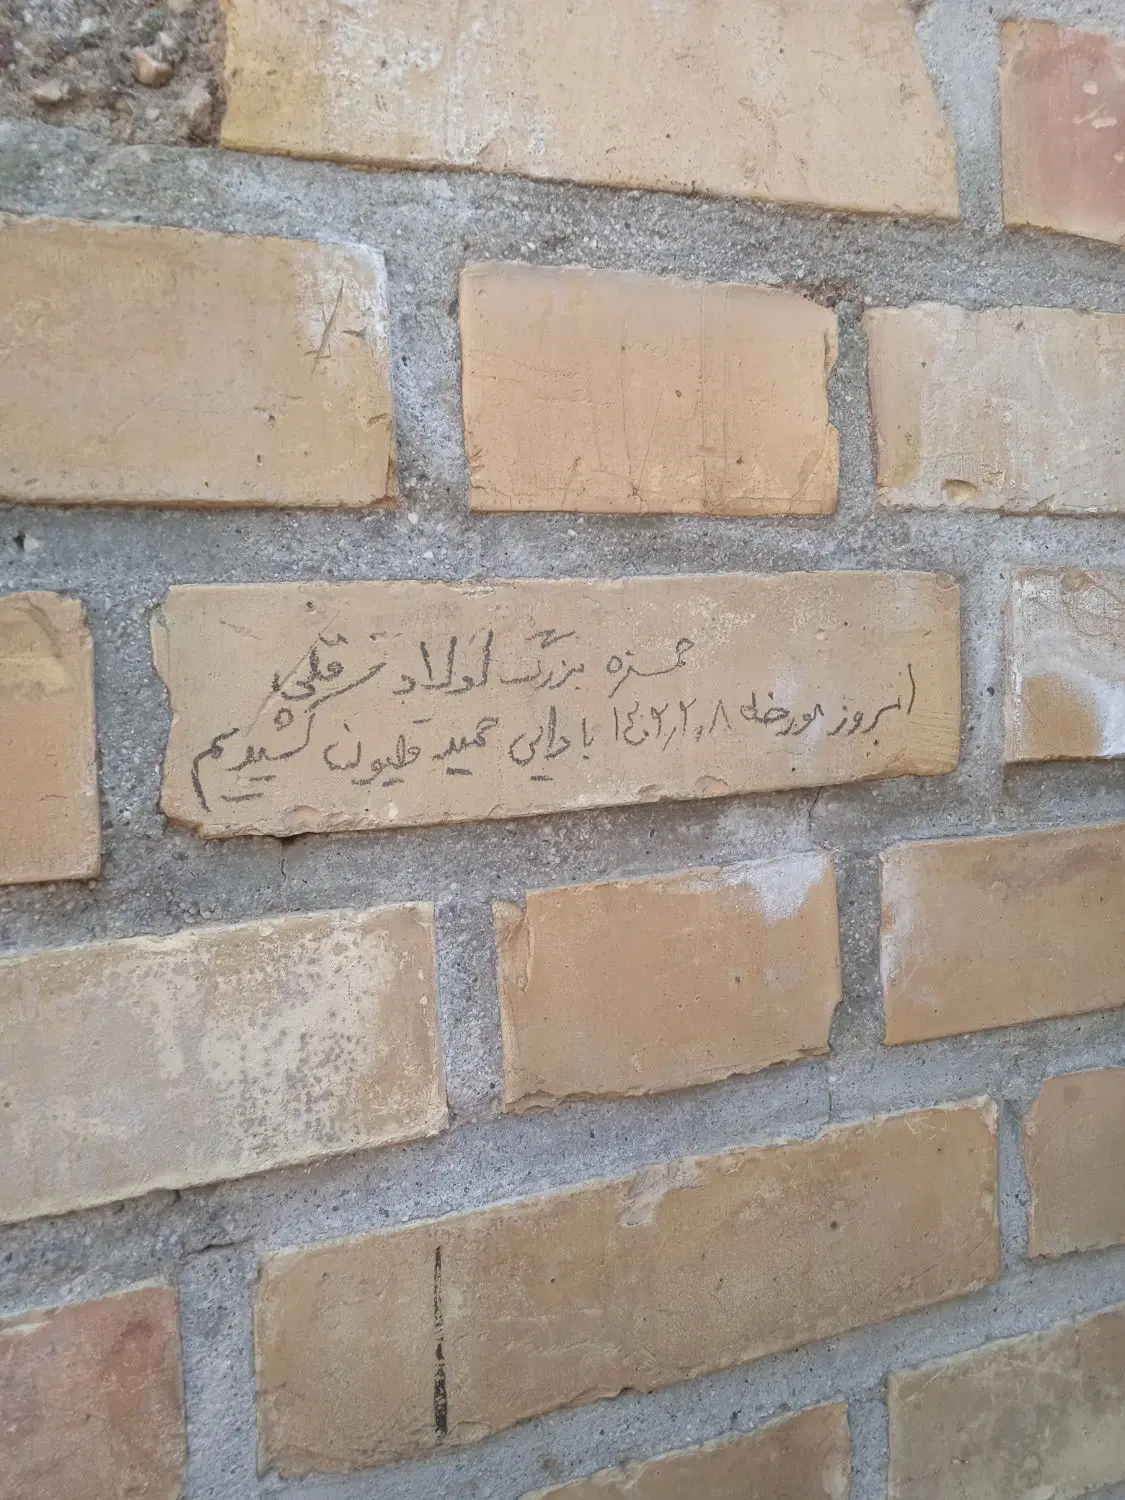 حمزه بزرگ اولاد قلی
امروز مورخه ۱۴۰۲٫۲٫۰۸ با دایی حمید قلیون کشیدیم